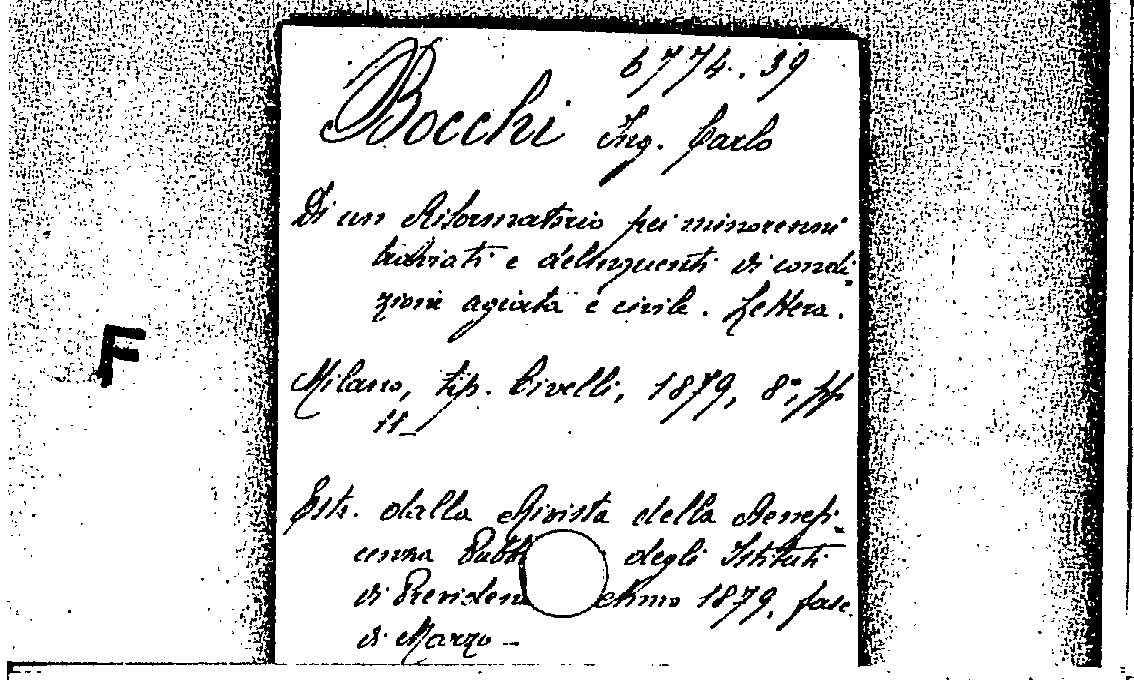 6774.39
Bocchi Ing. Carlo
Di un Riformatorio pei minorenni
traviati e delinquenti di condi-
zione agiata e civile. Lettera.
F
Milano, tip. Civelli, 1879, 8°, pp
11_
Estr. dalla Rivista della Benefi-
cenza Pubb degli Istituti
di Previdenz Anno 1879, fasc.
di Marzo _